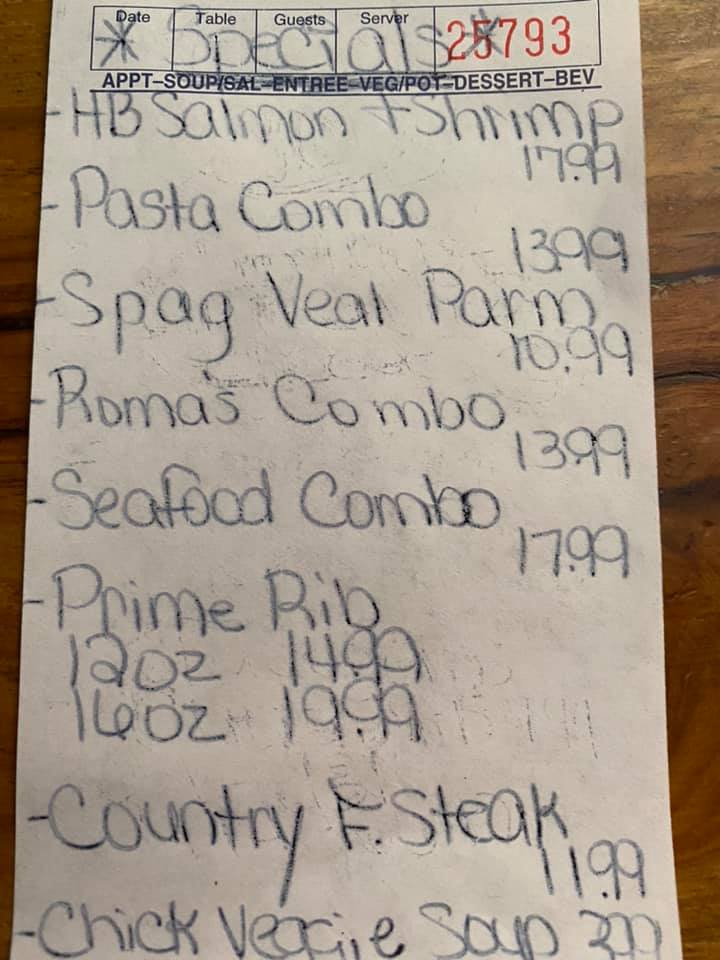 Date Table Guests Server
* Specials * 25793
APPT–SOUP/SAL–ENTREE–VEG/POT–DESSERT–BEV
-HB Salmon + Shrimp
17.99
-Pasta Combo
13.99
-Spag Veal Parm
10.99
-Roma's Combo
13.99
-Seafood Combo
17.99
-Prime Rib
12oz 14.99
16oz 19.99
-Country F. Steak
11.99
-Chick Veggie Soup 3.99